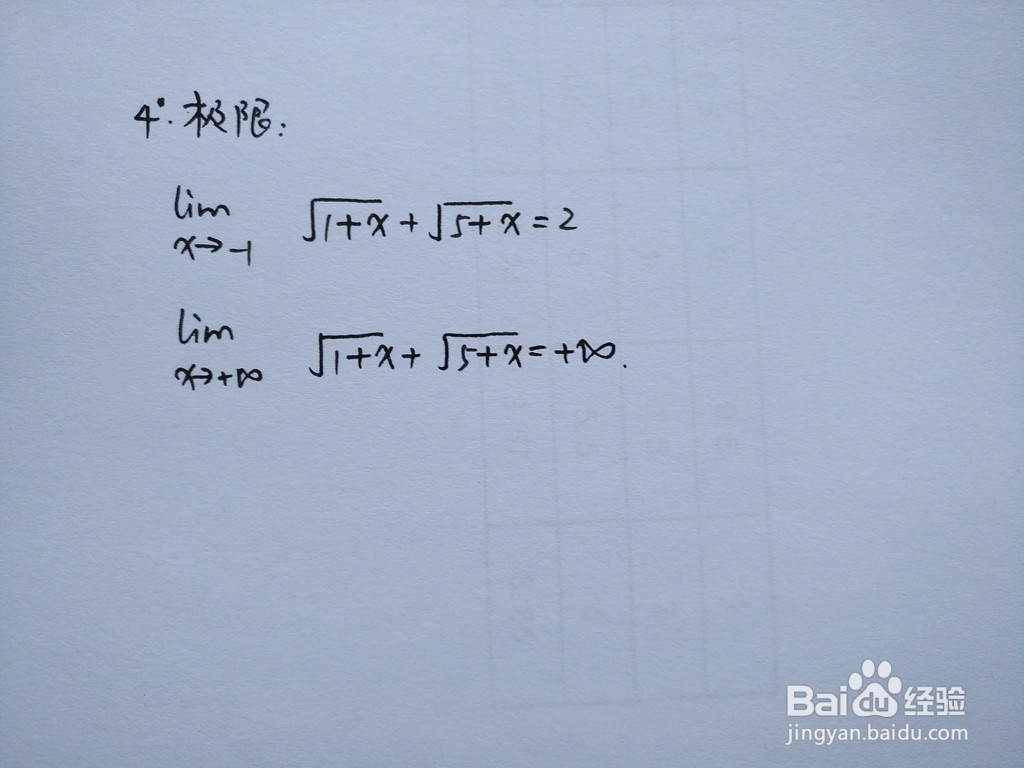 4°. 极限:
lim √1+x + √5+x = 2
x→-1
lim √1+x + √5+x = +∞.
x→+∞
Bai du 经验
jingyan.baidu.com